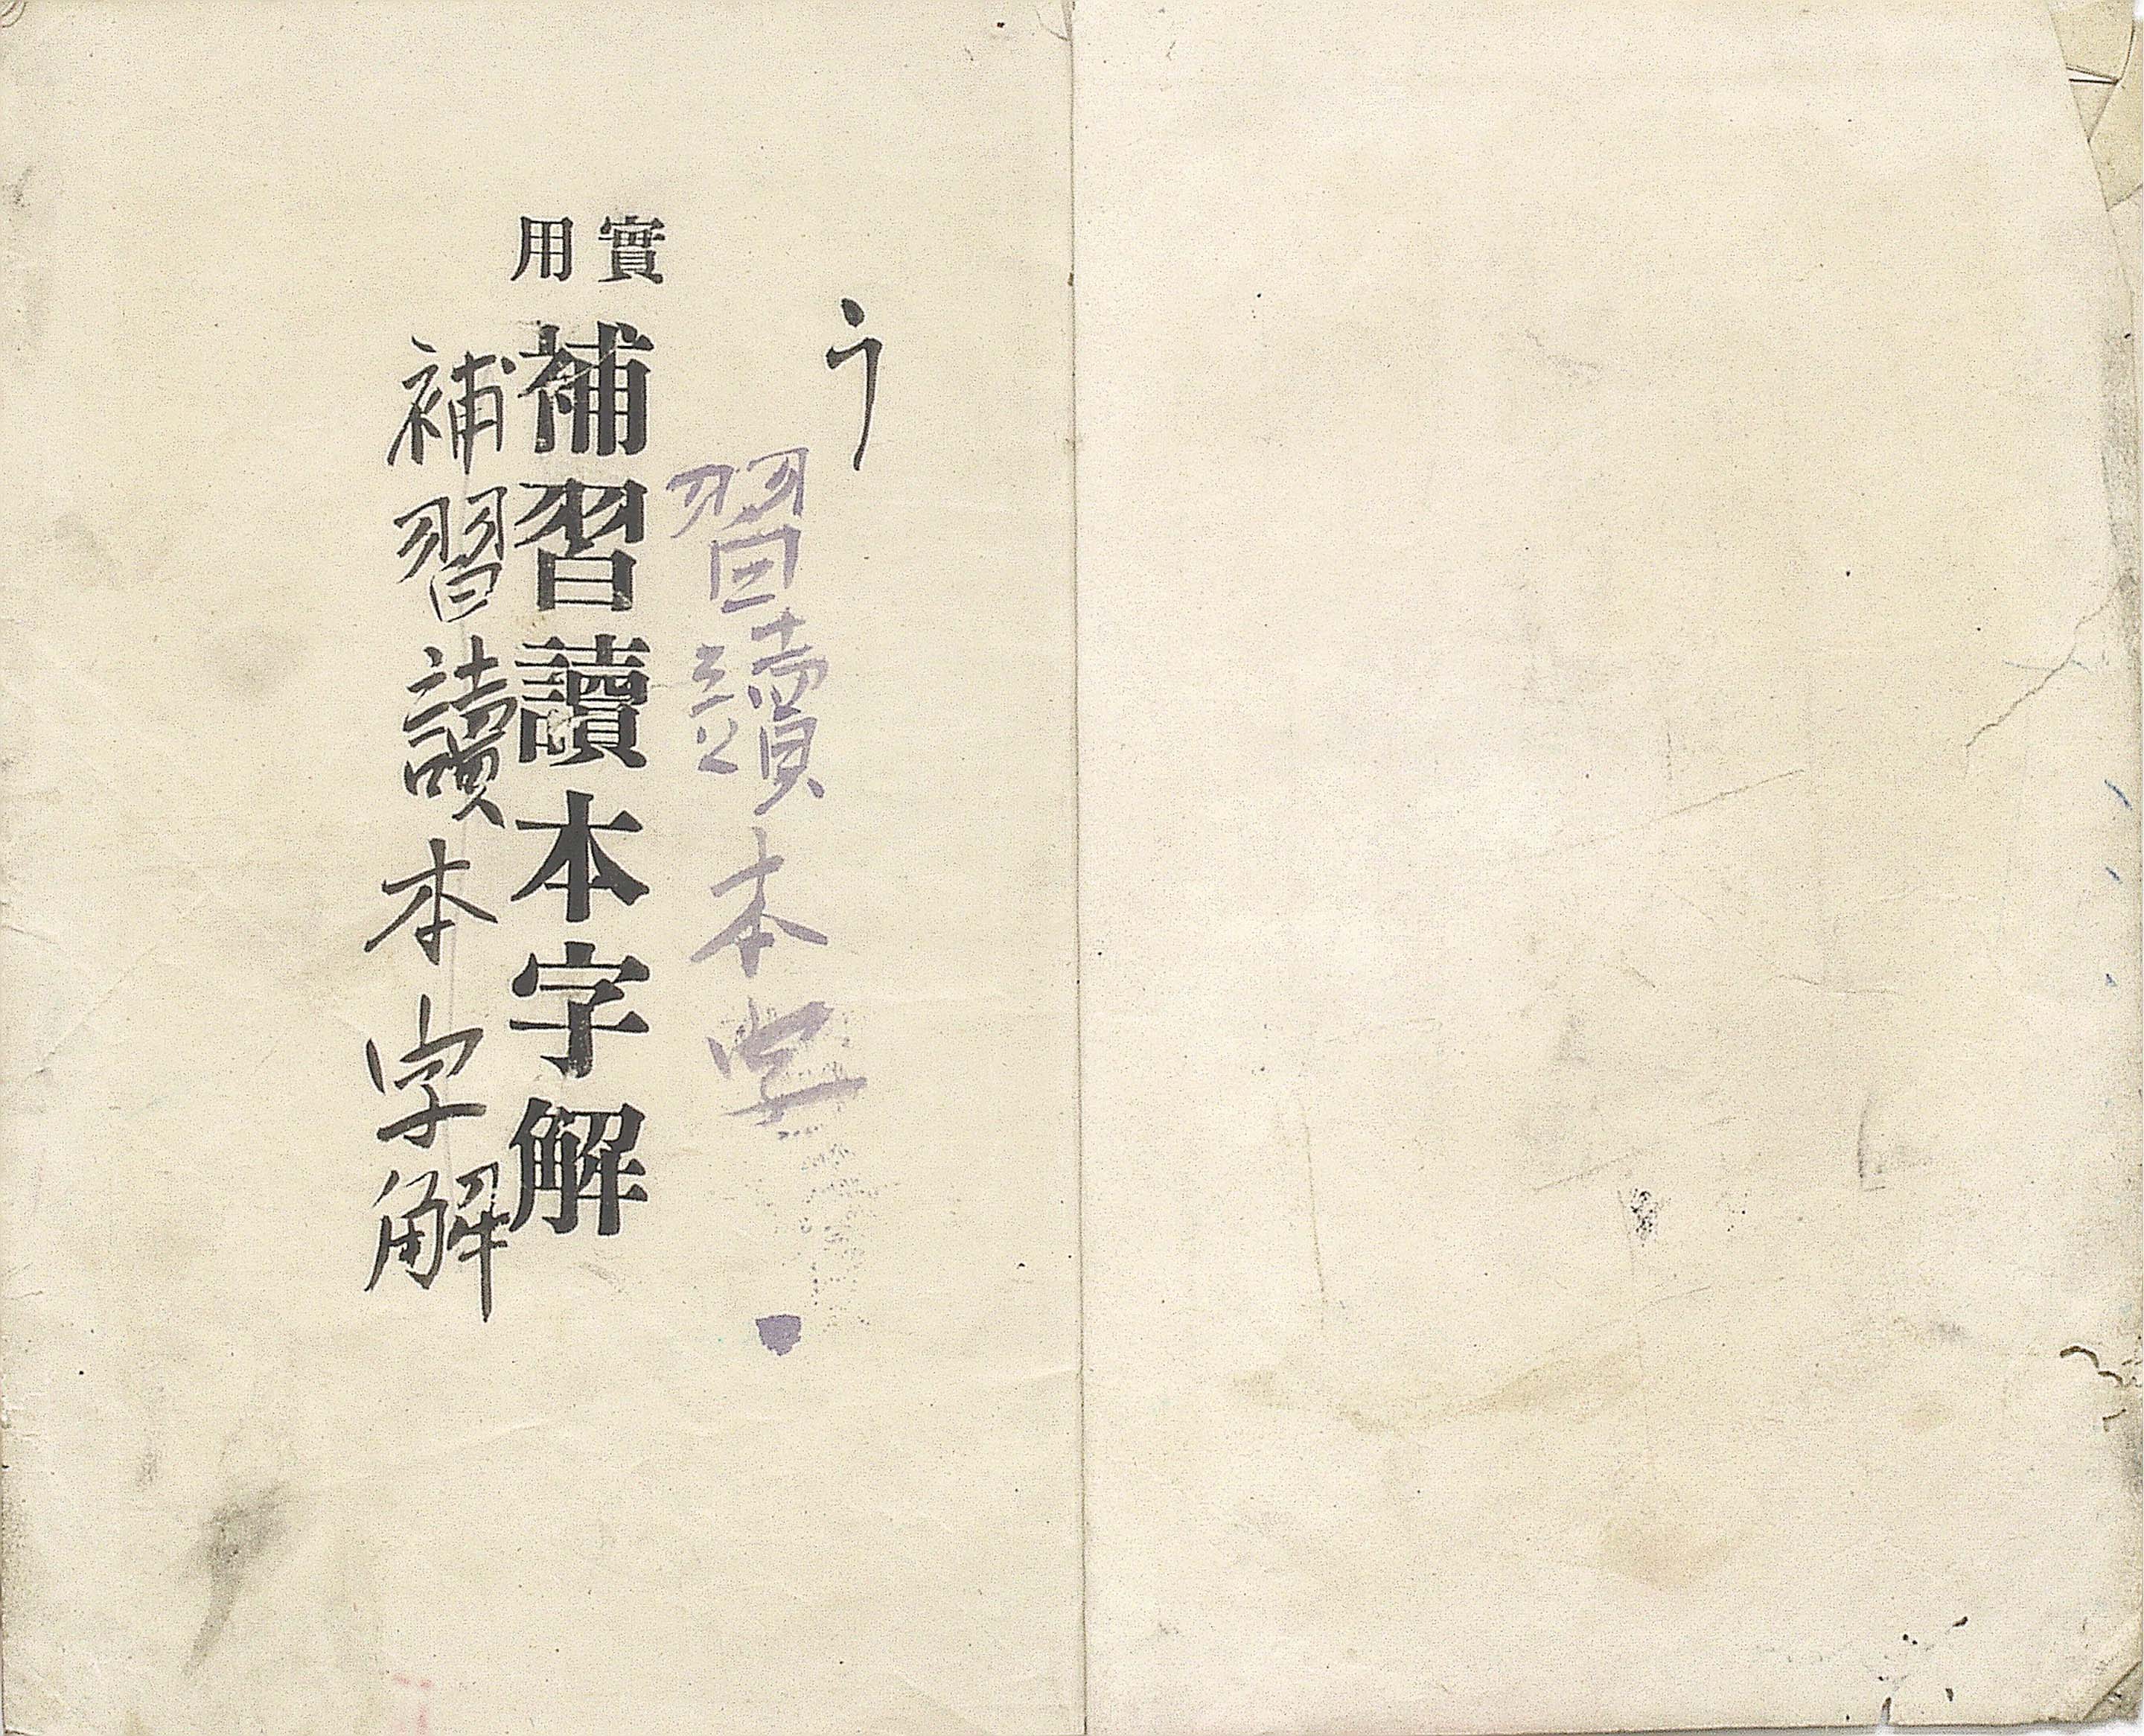 習讀本字
實用
補習讀本字解
補習讀本字解